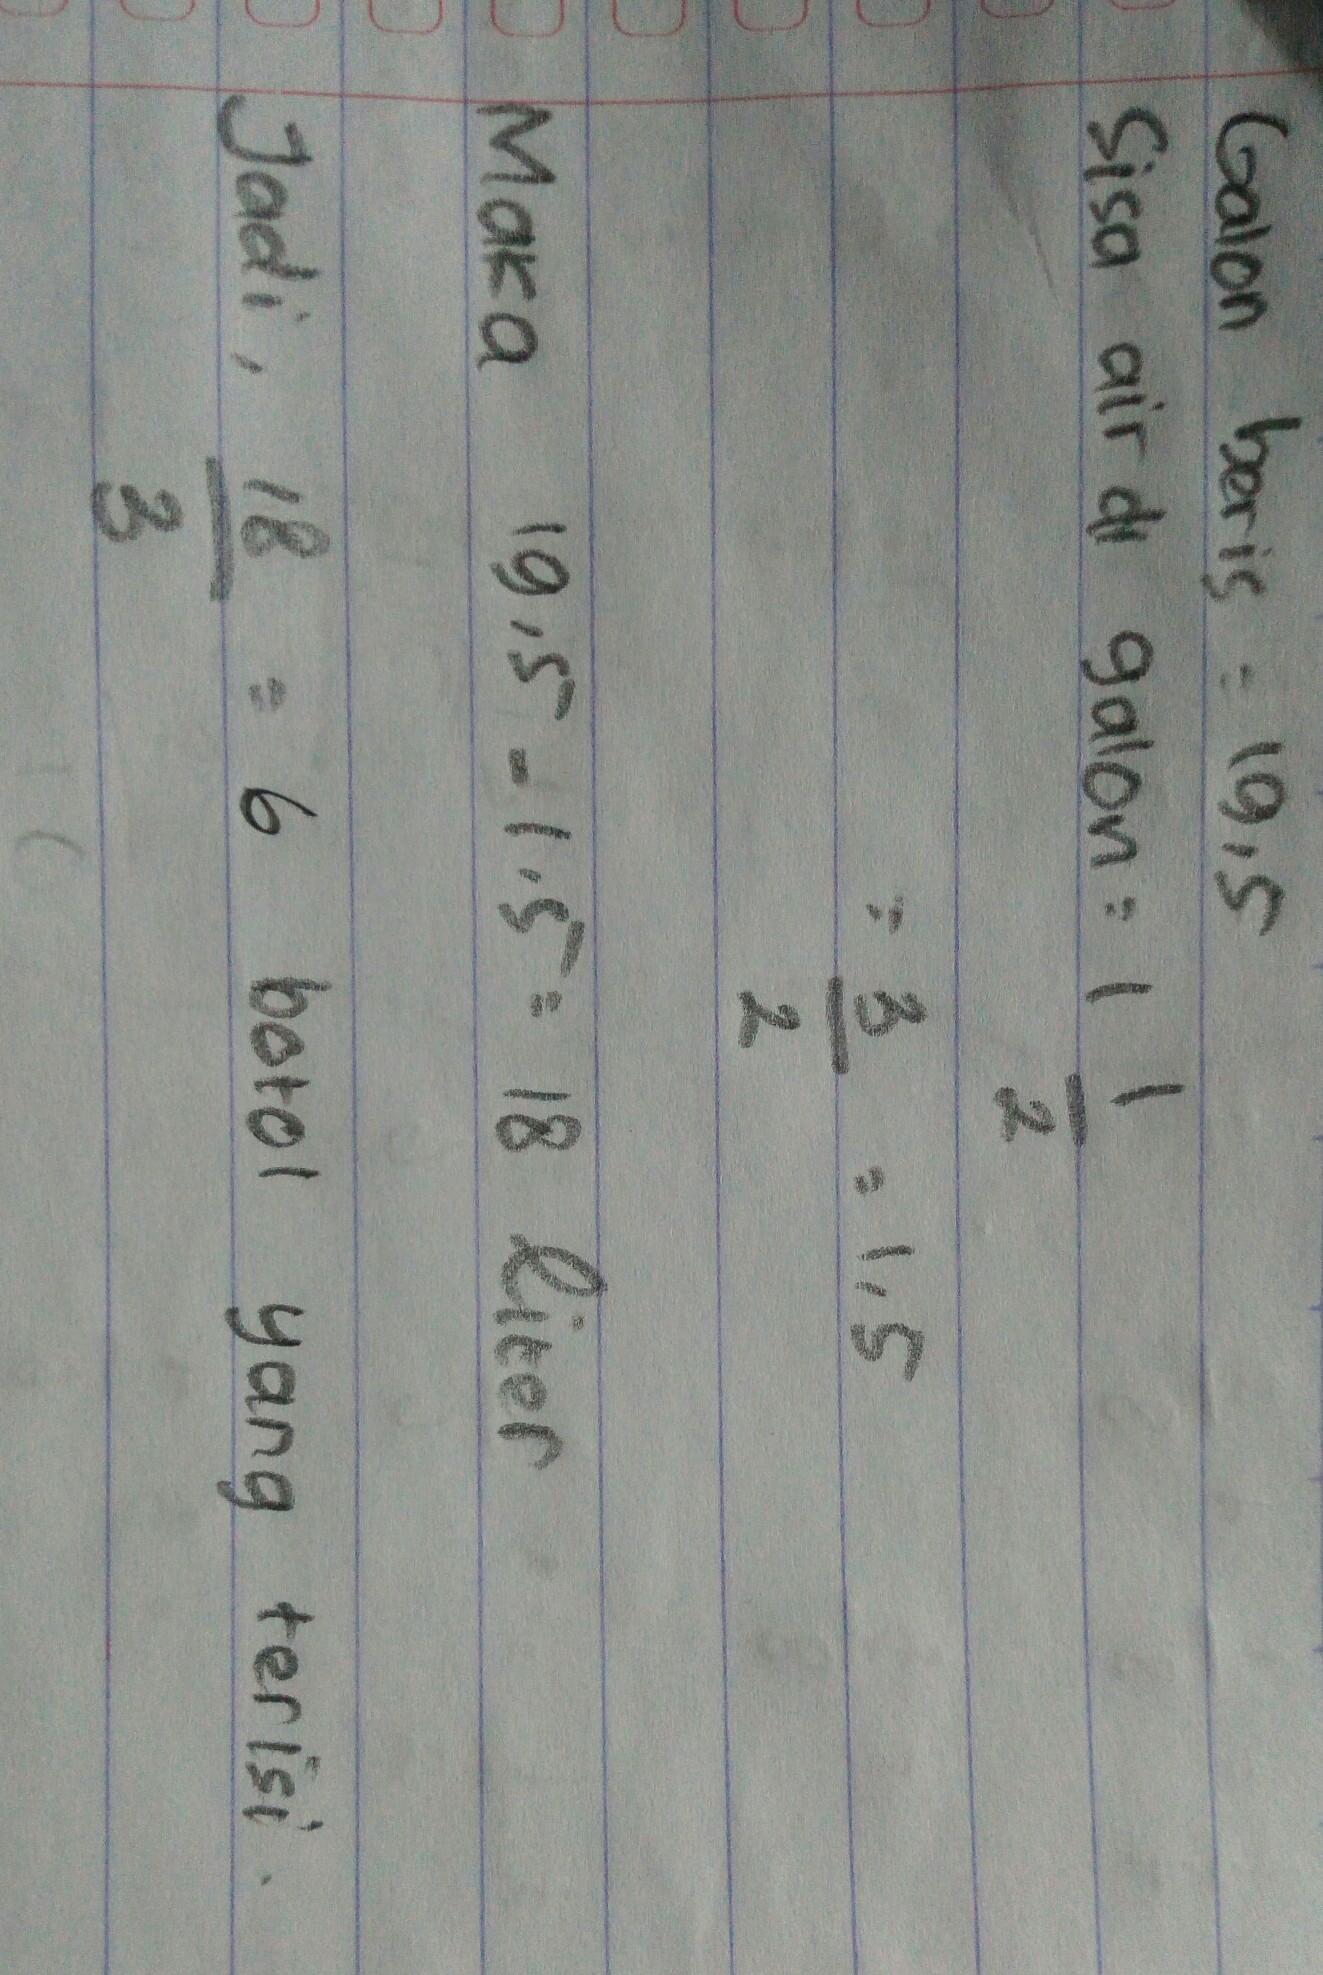 Galon beris = 19,5
Sisa air di galon = 1 1/2
= 3/2 = 1,5
Maka 19,5 - 1,5 = 18 liter
Jadi, 18/3 = 6 botol yang terisi.